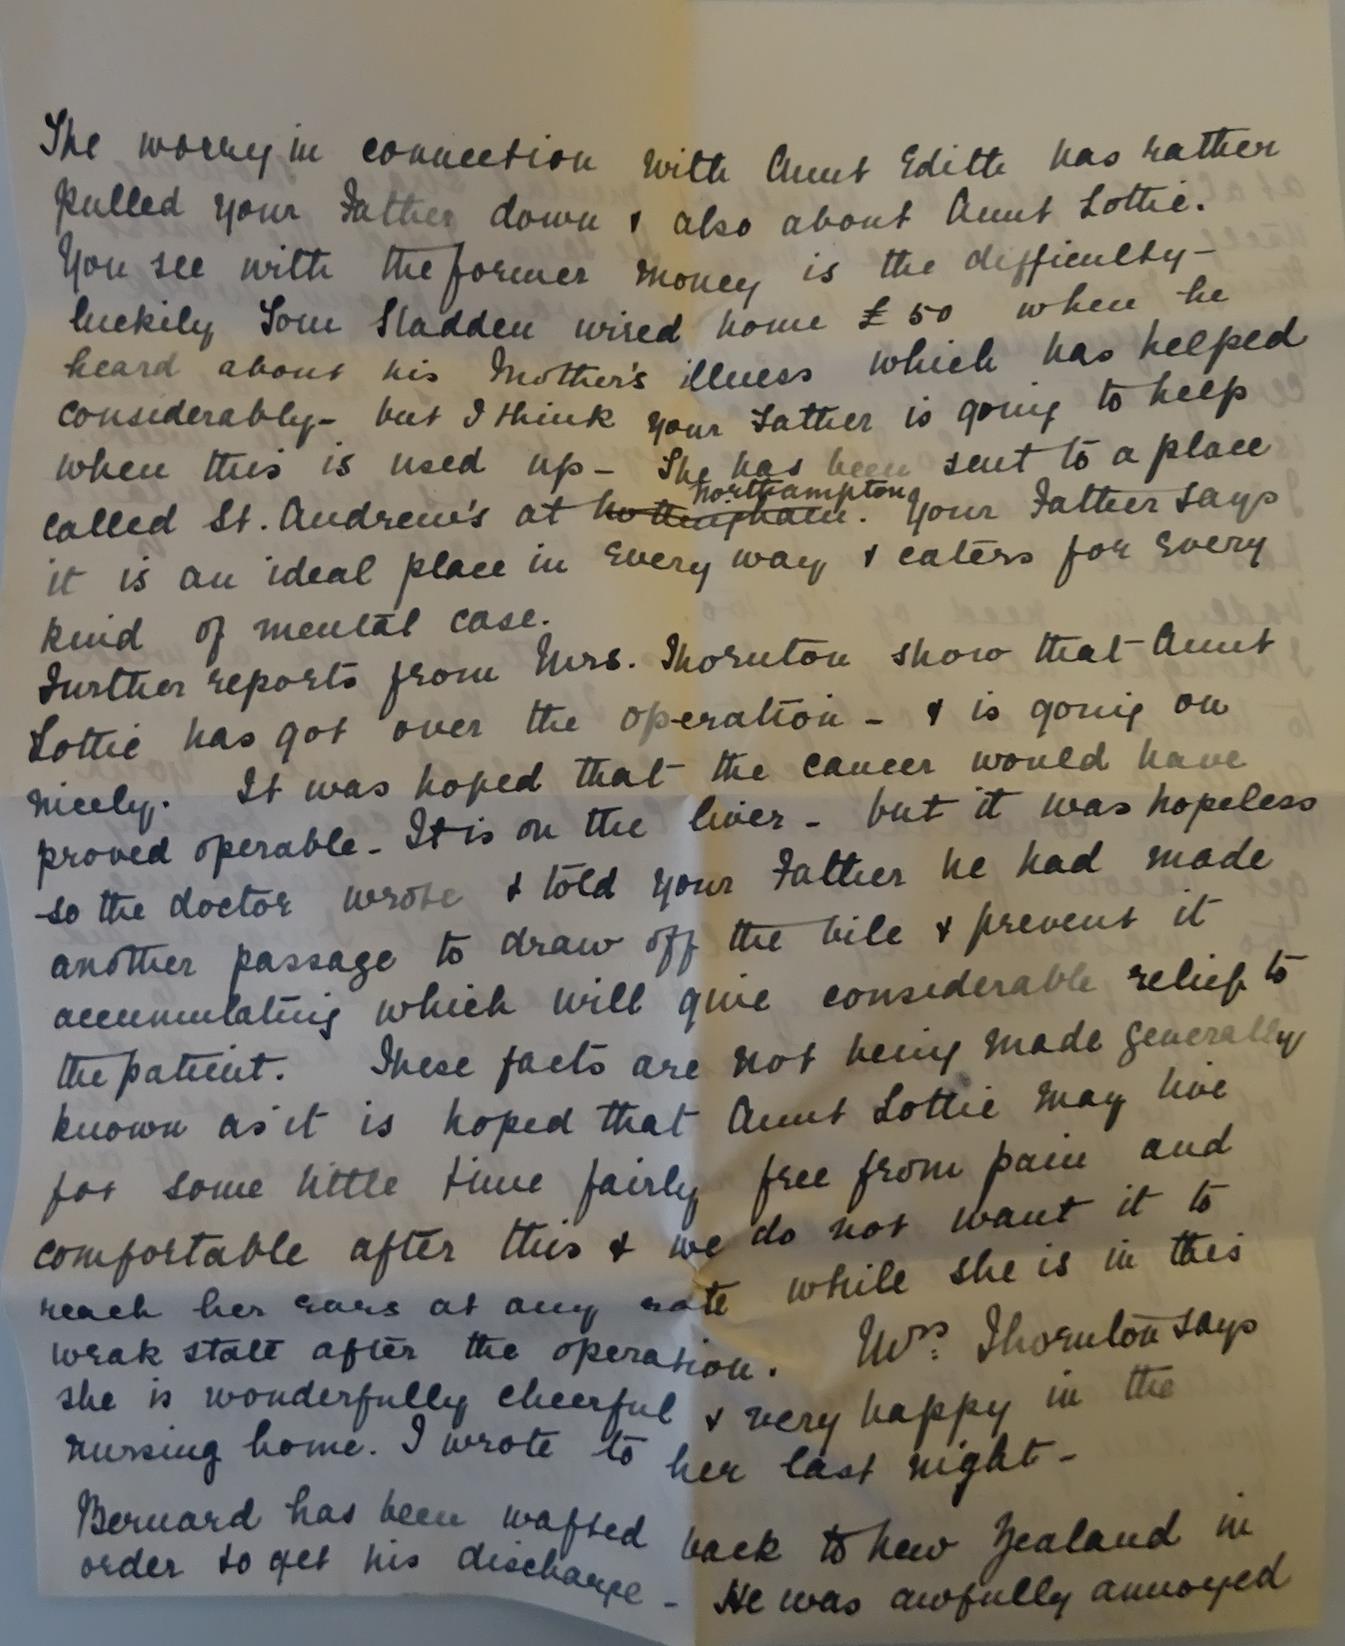 The worry in connection with Aunt Edith has rather
pulled your Father down & also about Aunt Lottie.
You see with the former money is the difficulty -
luckily Tom Sladden wired home £50 when he
heard about his Mother's illness which has helped
considerably - but I think your Father is going to help
when this is used up - She has been sent to a place
called St. Andrew's at Nottingham. Northampton Your Father says
it is an ideal place in every way & caters for every
kind of mental case.
Further reports from Mrs. Thornton show that Aunt
Lottie has got over the operation - & is going on
nicely. It was hoped that the cancer would have
proved operable - It is on the liver - but it was hopeless
so the doctor wrote & told your Father he had made
another passage to draw off the bile & prevent it
accumulating which will give considerable relief to
the patient. These facts are not being made generally
known as it is hoped that Aunt Lottie may live
for some little time fairly free from pain and
comfortable after this & we do not want it to
reach her ears at any rate while she is in this
weak state after the operation. Mrs. Thornton says
she is wonderfully cheerful & very happy in the
nursing home. I wrote to her last night -
Bernard has been wafted back to New Zealand in
order to get his discharge - He was awfully annoyed